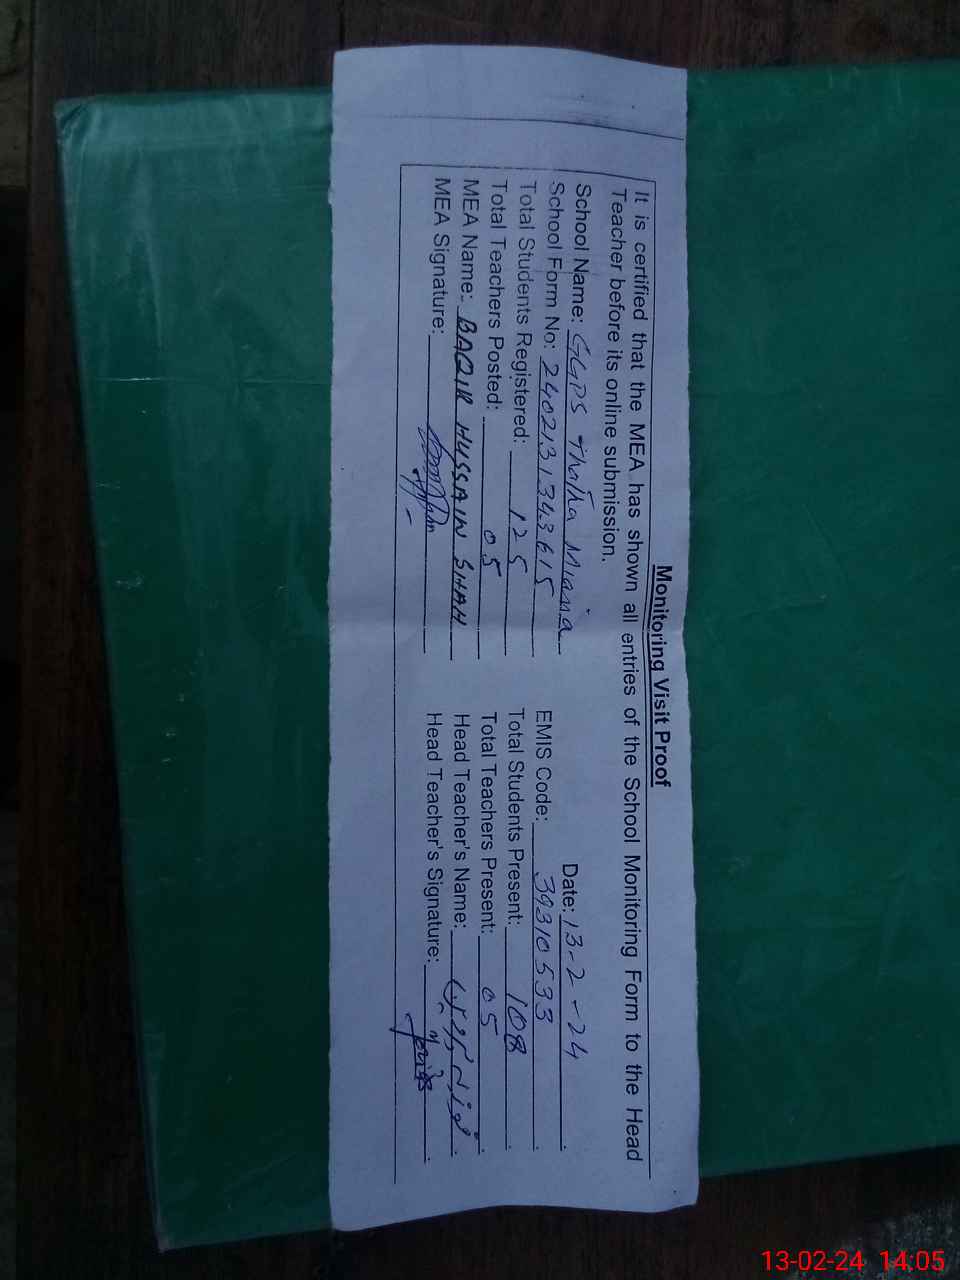 Monitoring Visit Proof
It is certified that the MEA has shown all entries of the School Monitoring Form to the Head
Teacher before its online submission.
Date: 13-2-24
School Name: GGPS Thatha Miana
School Form No: 2402131343615 EMIS Code: 39310533
Total Students Registered: 125 Total Students Present: 108
Total Teachers Posted: 05 Total Teachers Present: 05
MEA Name: BAQIR HUSSAIN SHAH Head Teacher's Name:
MEA Signature: Head Teacher's Signature:
13-02-24 14:05